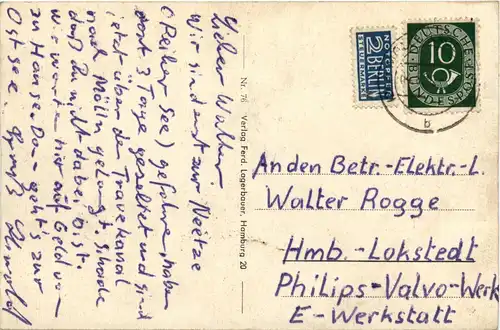 Lieber Walter
Wir sind erst zur Noetze
(Reiher See) gefahren, haben
dort 3 Tage gesegelt und sind
jetzt über den Travekanal
nach Mölln gelangt. Schade
daß Du nicht dabei bist.
Wir warten hier auf Geld von
zu Hause. Dann geht's zur
Ostsee. Gruß
Nr. 76 Verlag Ferd. Lagerbauer, Hamburg 20
NOTOPFER
2 BERLIN
STEUERMARKE
DEUTSCHE
10
BUNDESPOST
b
An den Betr.-Elektr.-L.
Walter Rogge
Hmb.-Lokstedt
Philips-Valvo-Werk
E-Werkstatt